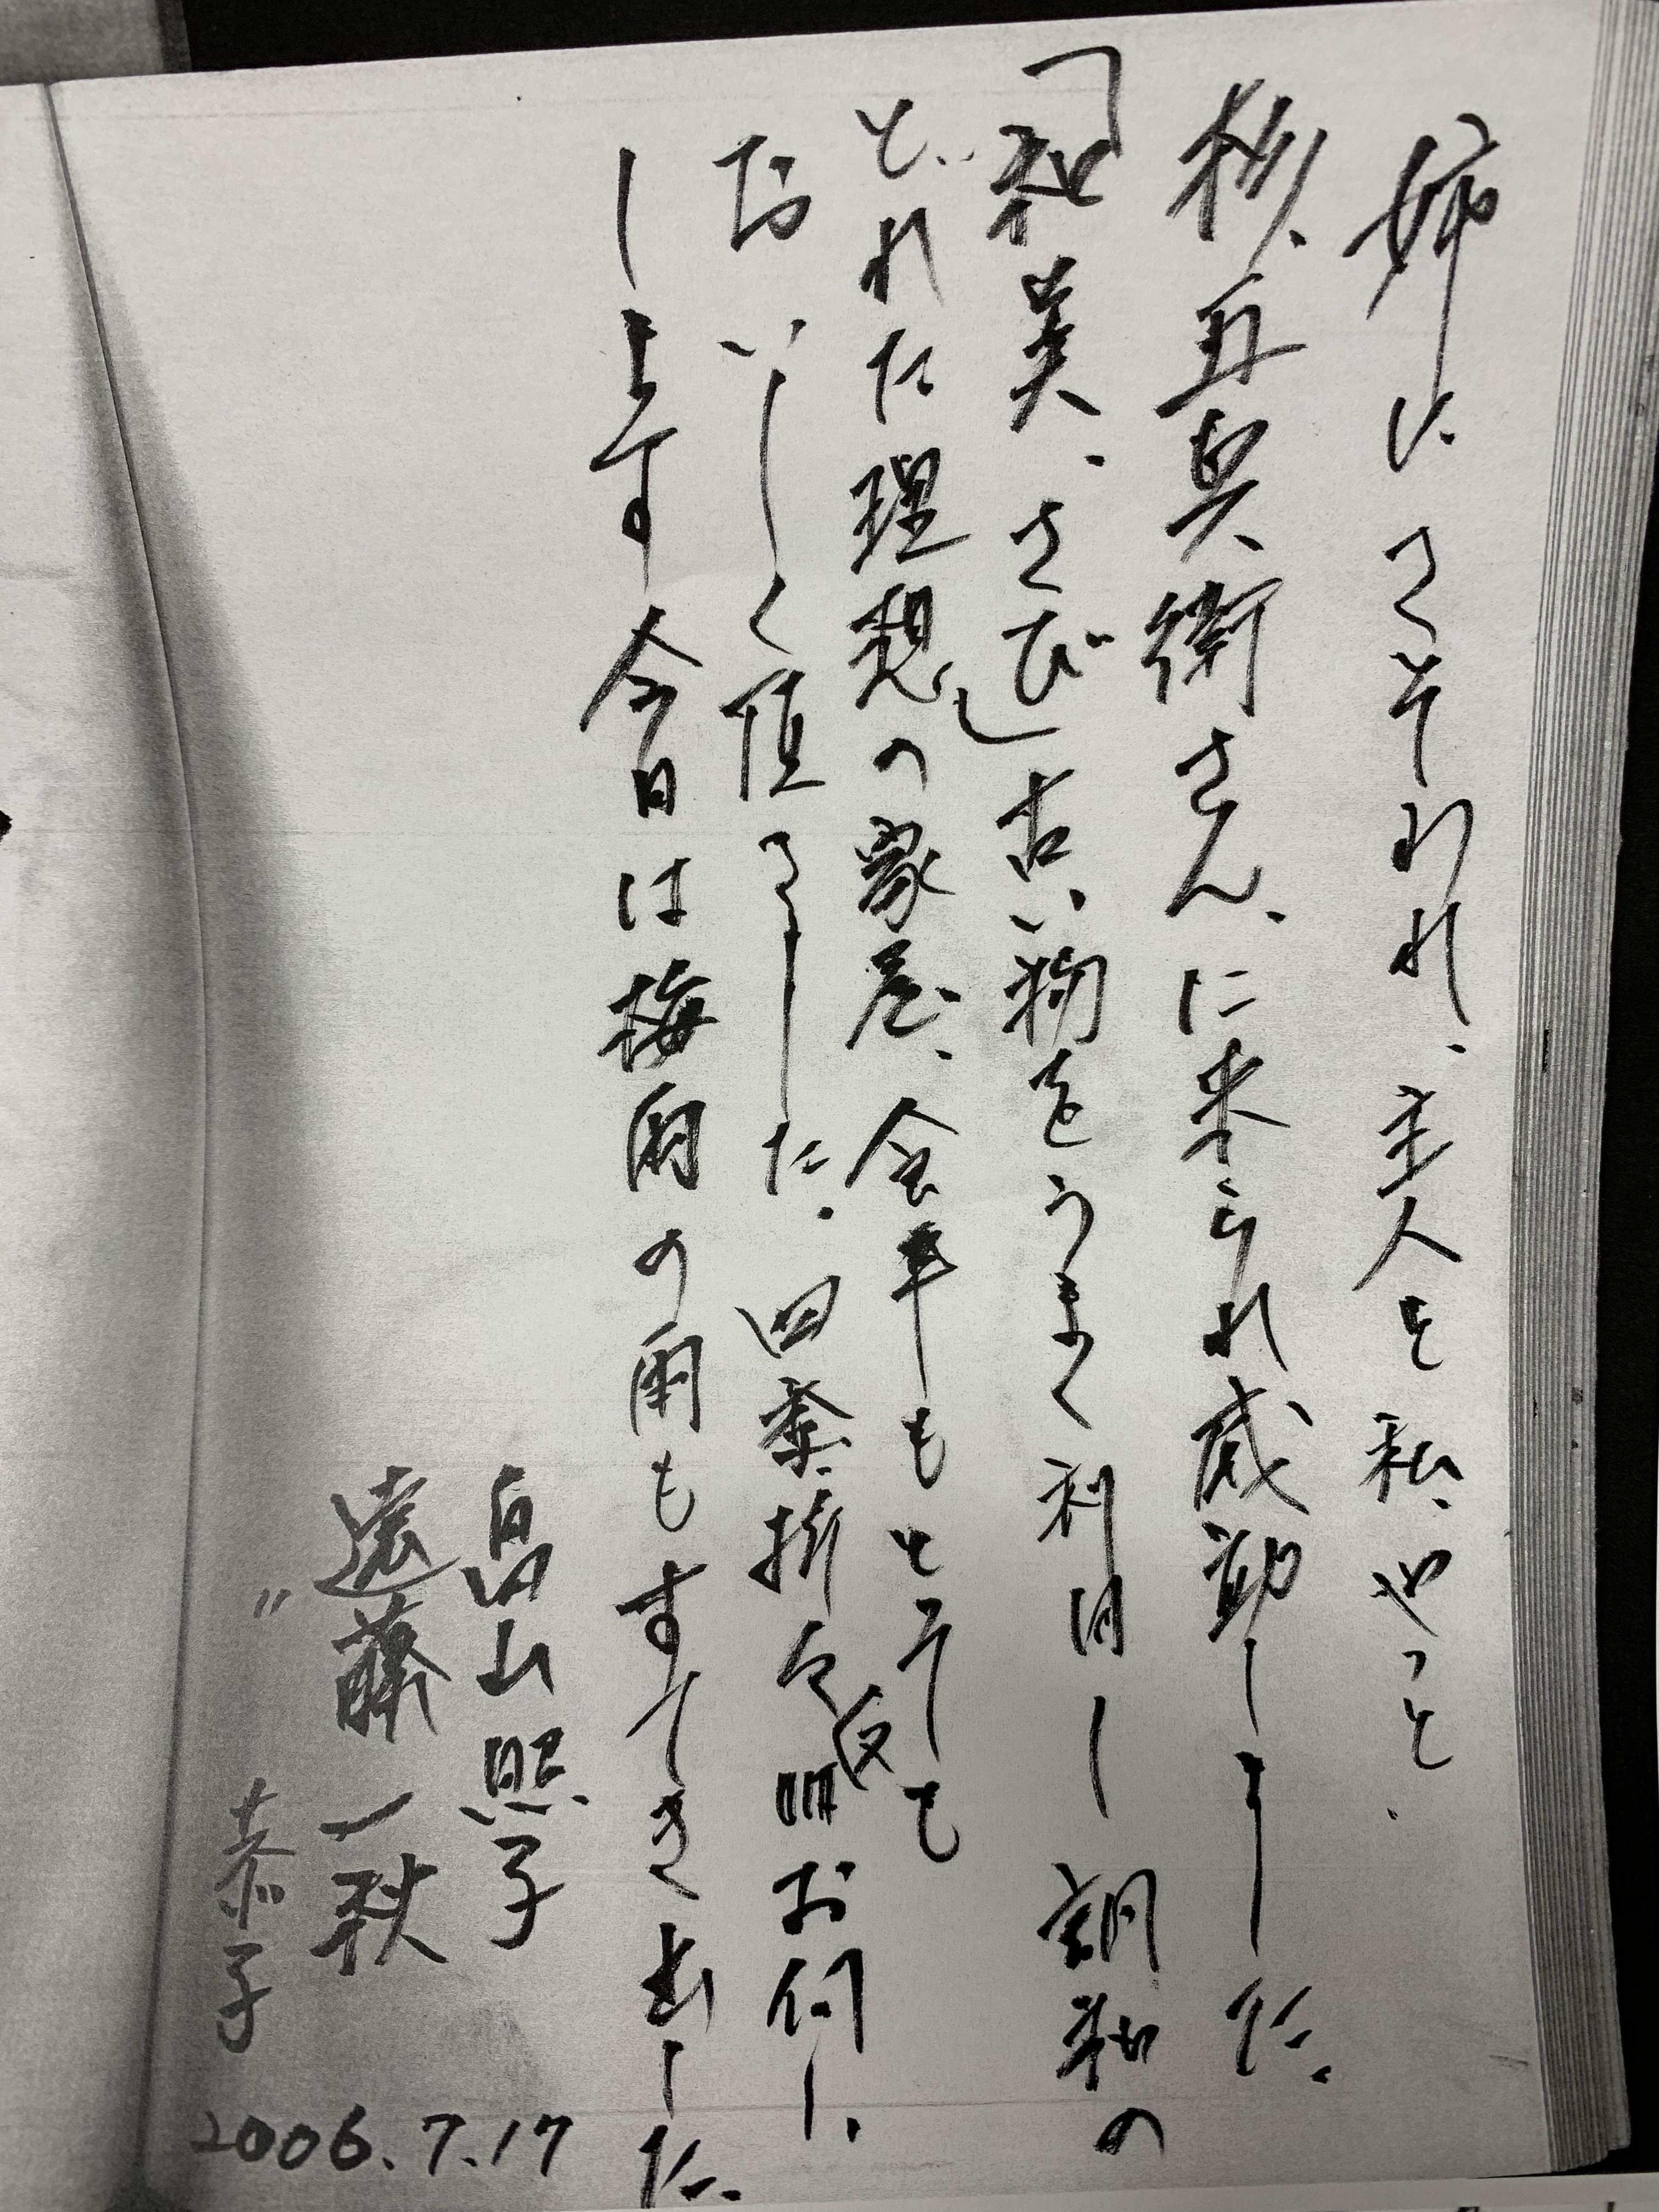 姉にさそわれ、主人と私、やっと、
杉、五兵衛さん、に来られ感動しました。
「和美、さび」古い物をうまく利用し調和の
とれた理想の家屋、会席もとっても
おいしく頂きました。四季折々又お伺い
します今日は梅雨の雨もすてきでした。
畠山照子
遠藤一秋
〃 恭子
2006.7.17